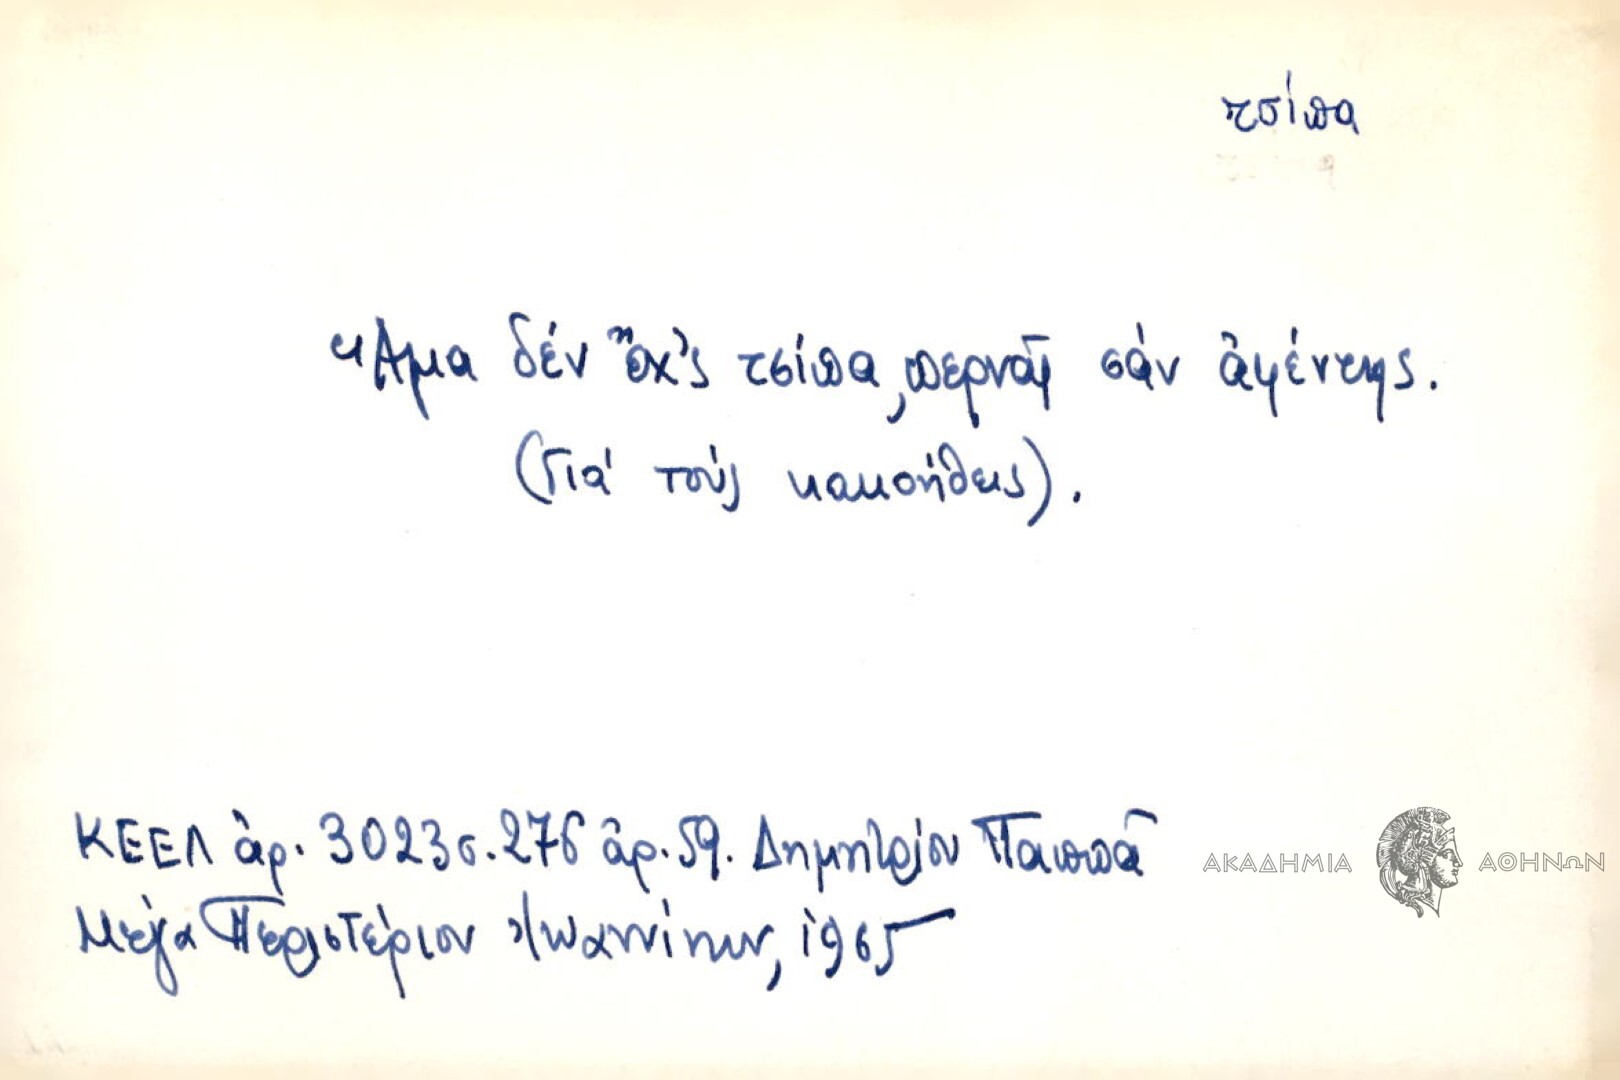 τσίπα
Ἅμα δέν ἔχ'ς τσίπα, περνᾶς σάν ἀφέντης.
(Γιά τούς κακοήθεις).
ΚΕΕΛ ἀρ. 3023 σ. 276 ἀρ. 59. Δημητρίου Παππᾶ
ΑΚΑΔΗΜΙΑ ΑΘΗΝΩΝ
Μεγα Περιστέριον Ἰωαννίνων, 1965